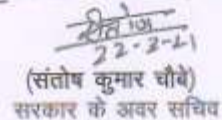 22-2-21
(संतोष कुमार चौबे)
सरकार के अवर सचिव